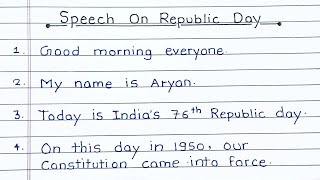 Speech On Republic Day
1. Good morning everyone.
2. My name is Aryan.
3. Today is India's 76th Republic day.
4. On this day in 1950, our
Constitution came into force.